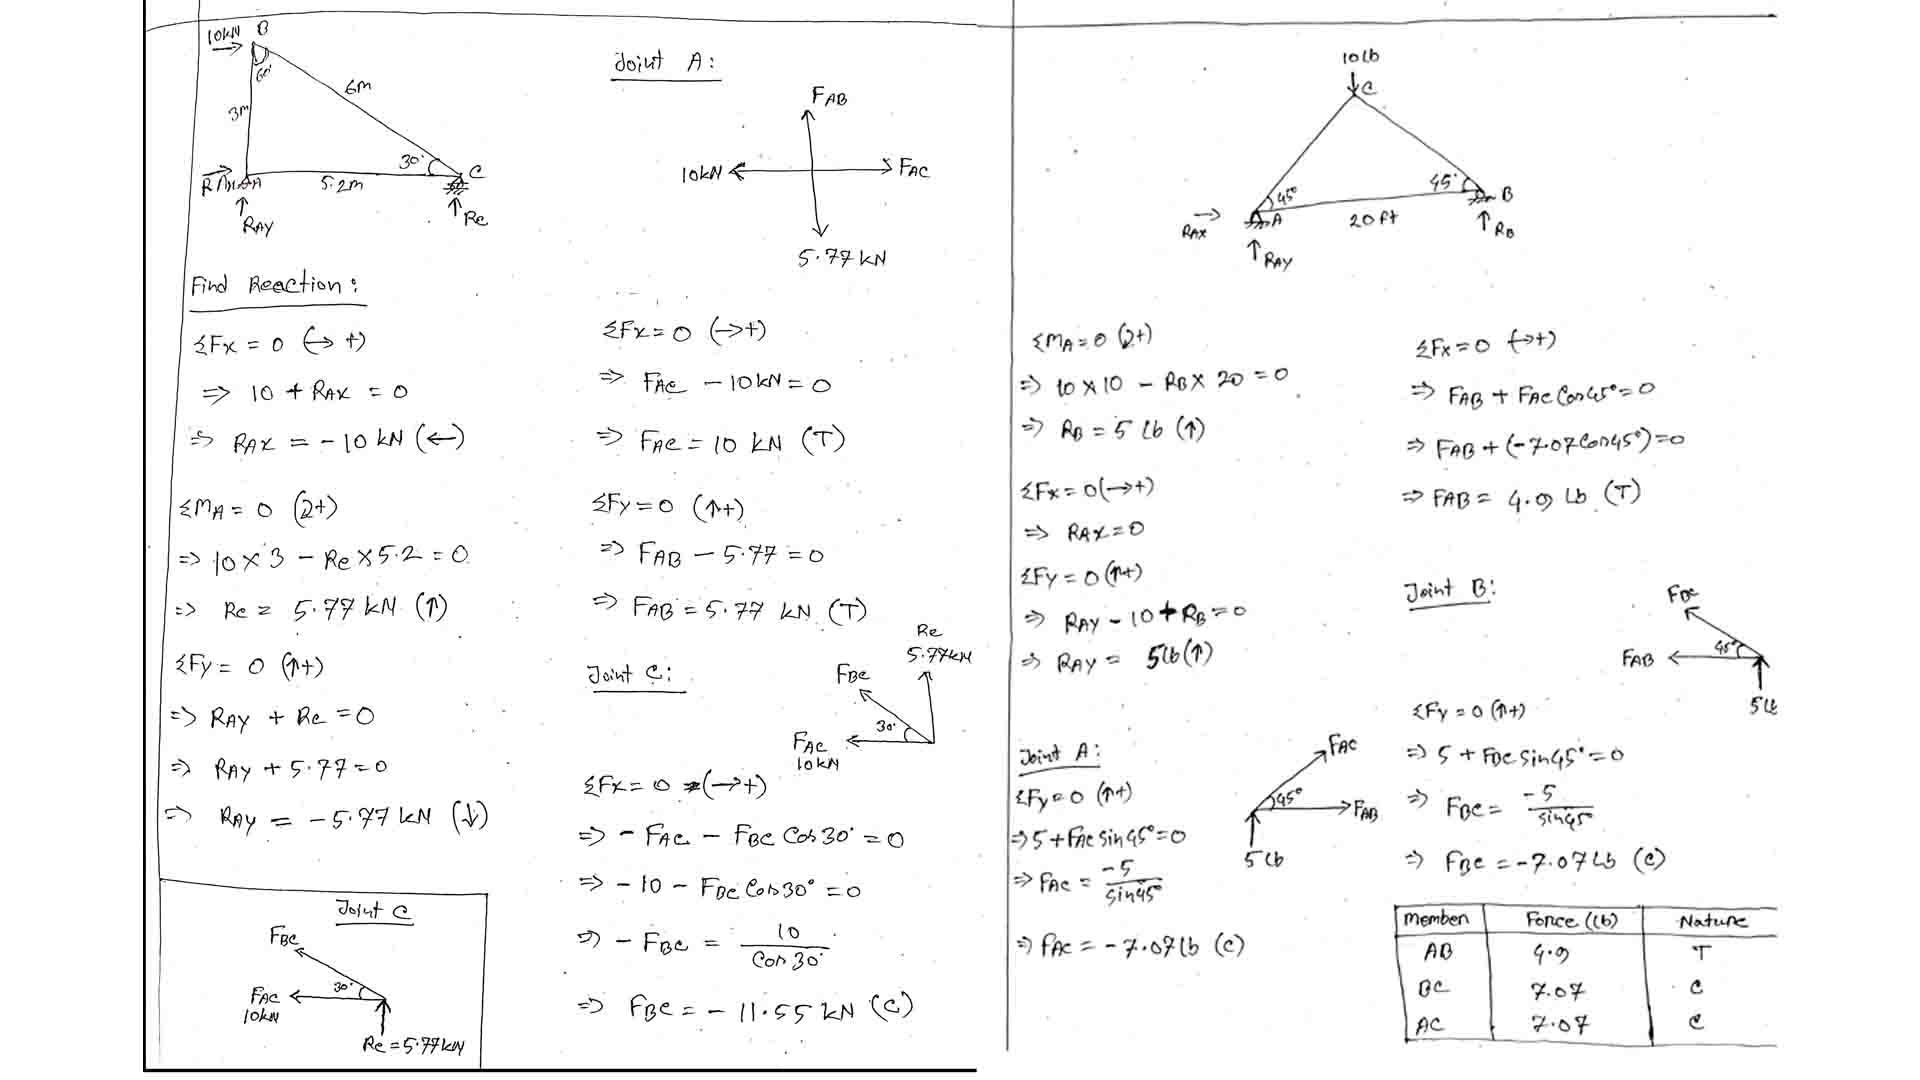 10kN B
60°
6m
3m
30°
C
RAx A
5.2m
RAY
Rc
Find Reaction:
ΣFx = 0 (→ +)
⇒ 10 + RAX = 0
⇒ RAX = -10 kN (←)
ΣMA = 0 (↻+)
⇒ 10 × 3 - Rc × 5.2 = 0
⇒ Rc = 5.77 kN (↑)
ΣFy = 0 (↑+)
⇒ RAY + Rc = 0
⇒ RAY + 5.77 = 0
⇒ RAY = -5.77 kN (↓)
Joint C
FBC
30°
FAC
10kN
Rc = 5.77kN
Joint A:
FAB
10kN
FAC
5.77 kN
ΣFx = 0 (→+)
⇒ FAC - 10kN = 0
⇒ FAC = 10 kN (T)
ΣFy = 0 (↑+)
⇒ FAB - 5.77 = 0
⇒ FAB = 5.77 kN (T)
Joint C:
Rc
5.77kN
FBC
30°
FAC
10kN
ΣFx = 0 (→+)
⇒ - FAC - FBC Cos 30° = 0
⇒ - 10 - FBC Cos 30° = 0
⇒ - FBC = 10 / Cos 30°
⇒ FBC = - 11.55 kN (C)
10 lb
C
45°
45°
B
A
20 ft
RAX
RAY
RB
ΣMA = 0 (↻+)
⇒ 10 × 10 - RB × 20 = 0
⇒ RB = 5 lb (↑)
ΣFx = 0 (→+)
⇒ RAX = 0
ΣFy = 0 (↑+)
⇒ RAY - 10 + RB = 0
⇒ RAY = 5 lb (↑)
Joint A:
ΣFy = 0 (↑+)
⇒ 5 + FAC sin 45° = 0
⇒ FAC = -5 / sin 45°
⇒ FAC = - 7.07 lb (C)
FAC
45°
FAB
5 lb
ΣFx = 0 (→+)
⇒ FAB + FAC Cos 45° = 0
⇒ FAB + (-7.07 Cos 45°) = 0
⇒ FAB = 4.9 lb (T)
Joint B:
FBC
45°
FAB
5 lb
ΣFy = 0 (↑+)
⇒ 5 + FBC sin 45° = 0
⇒ FBC = -5 / sin 45°
⇒ FBC = -7.07 Lb (C)
Member Force (lb) Nature
AB 4.9 T
BC 7.07 C
AC 7.07 C